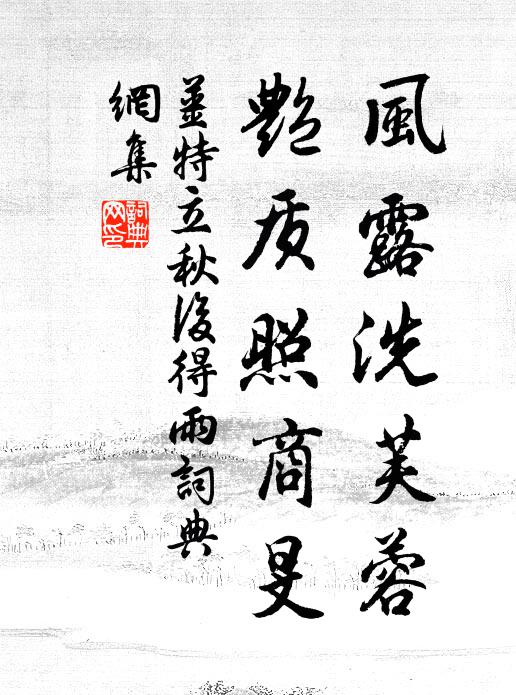 風露洗芙蓉
艷质照商旻
薑特立秋後得雨詞典
網集
詞典
网印